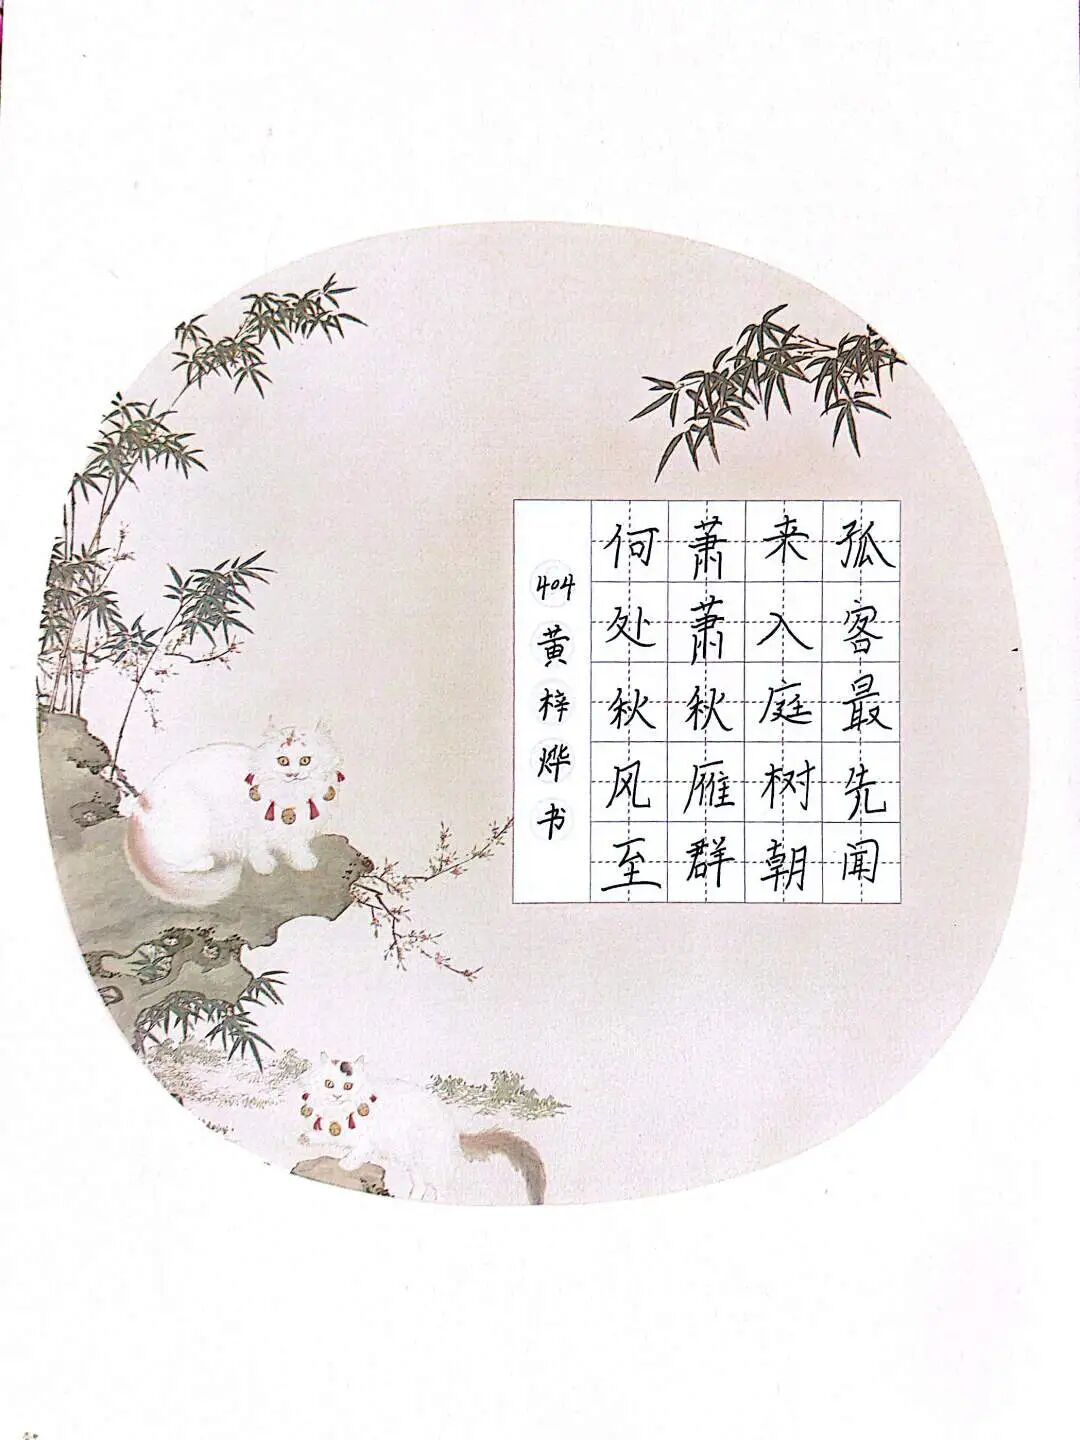 孤客最先闻
来入庭树朝
萧萧秋雁群
何处秋风至
404黄梓烨书